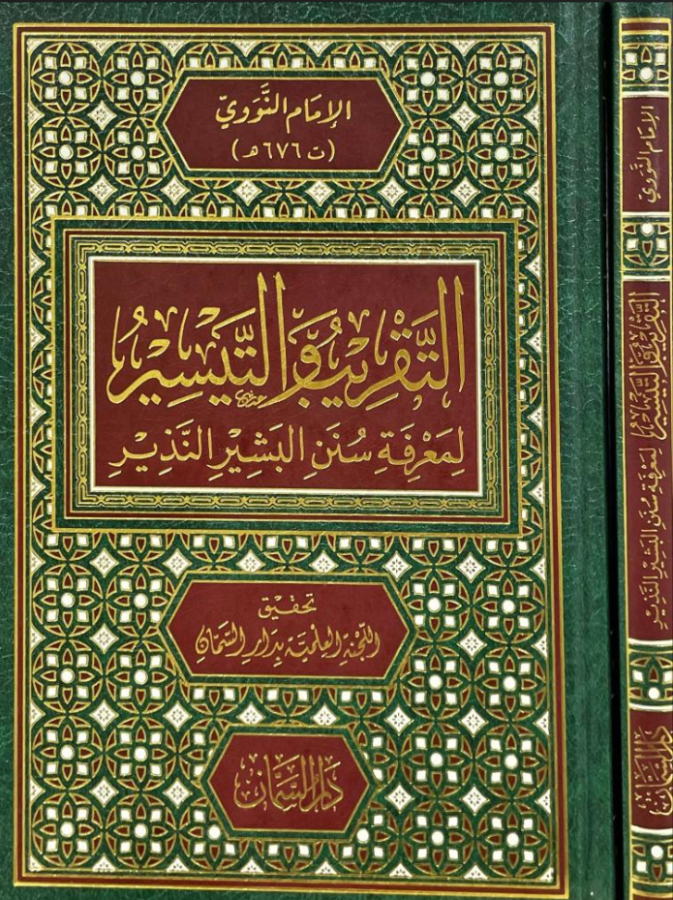 الإمام النَّوَويّ
(ت ٦٧٦ هـ)
التَّقْرِيبُ وَالتَّيْسِيرُ
لِمَعْرِفَةِ سُنَنِ البَشِيْرِ النَّذِيْرِ
تحقيق
اللَّجنة العِلميَّة بِدَارِ السَّمَّان
دَارُ السَّمَّان
الإمام النَّوَويّ
التَّقْرِيبُ وَالتَّيْسِيرُ
لِمَعْرِفَةِ سُنَنِ البَشِيْرِ النَّذِيْرِ
دَارُ السَّمَّان